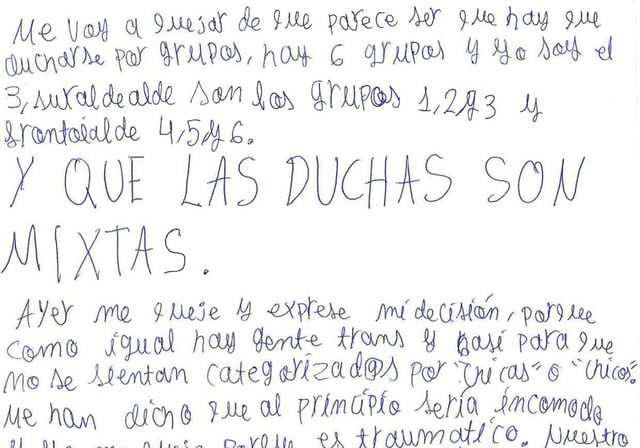 Me voy a quejar de que parece ser que hay que
ducharse por grupos, hay 6 grupos y yo soy el
3, sutaldealde son los grupos 1,2y3 y
frontoialde 4,5y6.
Y QUE LAS DUCHAS SON
MIXTAS.
Ayer me queje y exprese mi decisión, porque
como igual hay gente trans y pasé para que
no se sientan categorizad@s por "chicas" o "chicos".
Me han dicho que al principio seria incomodo
porque es traumatico. Nuestro